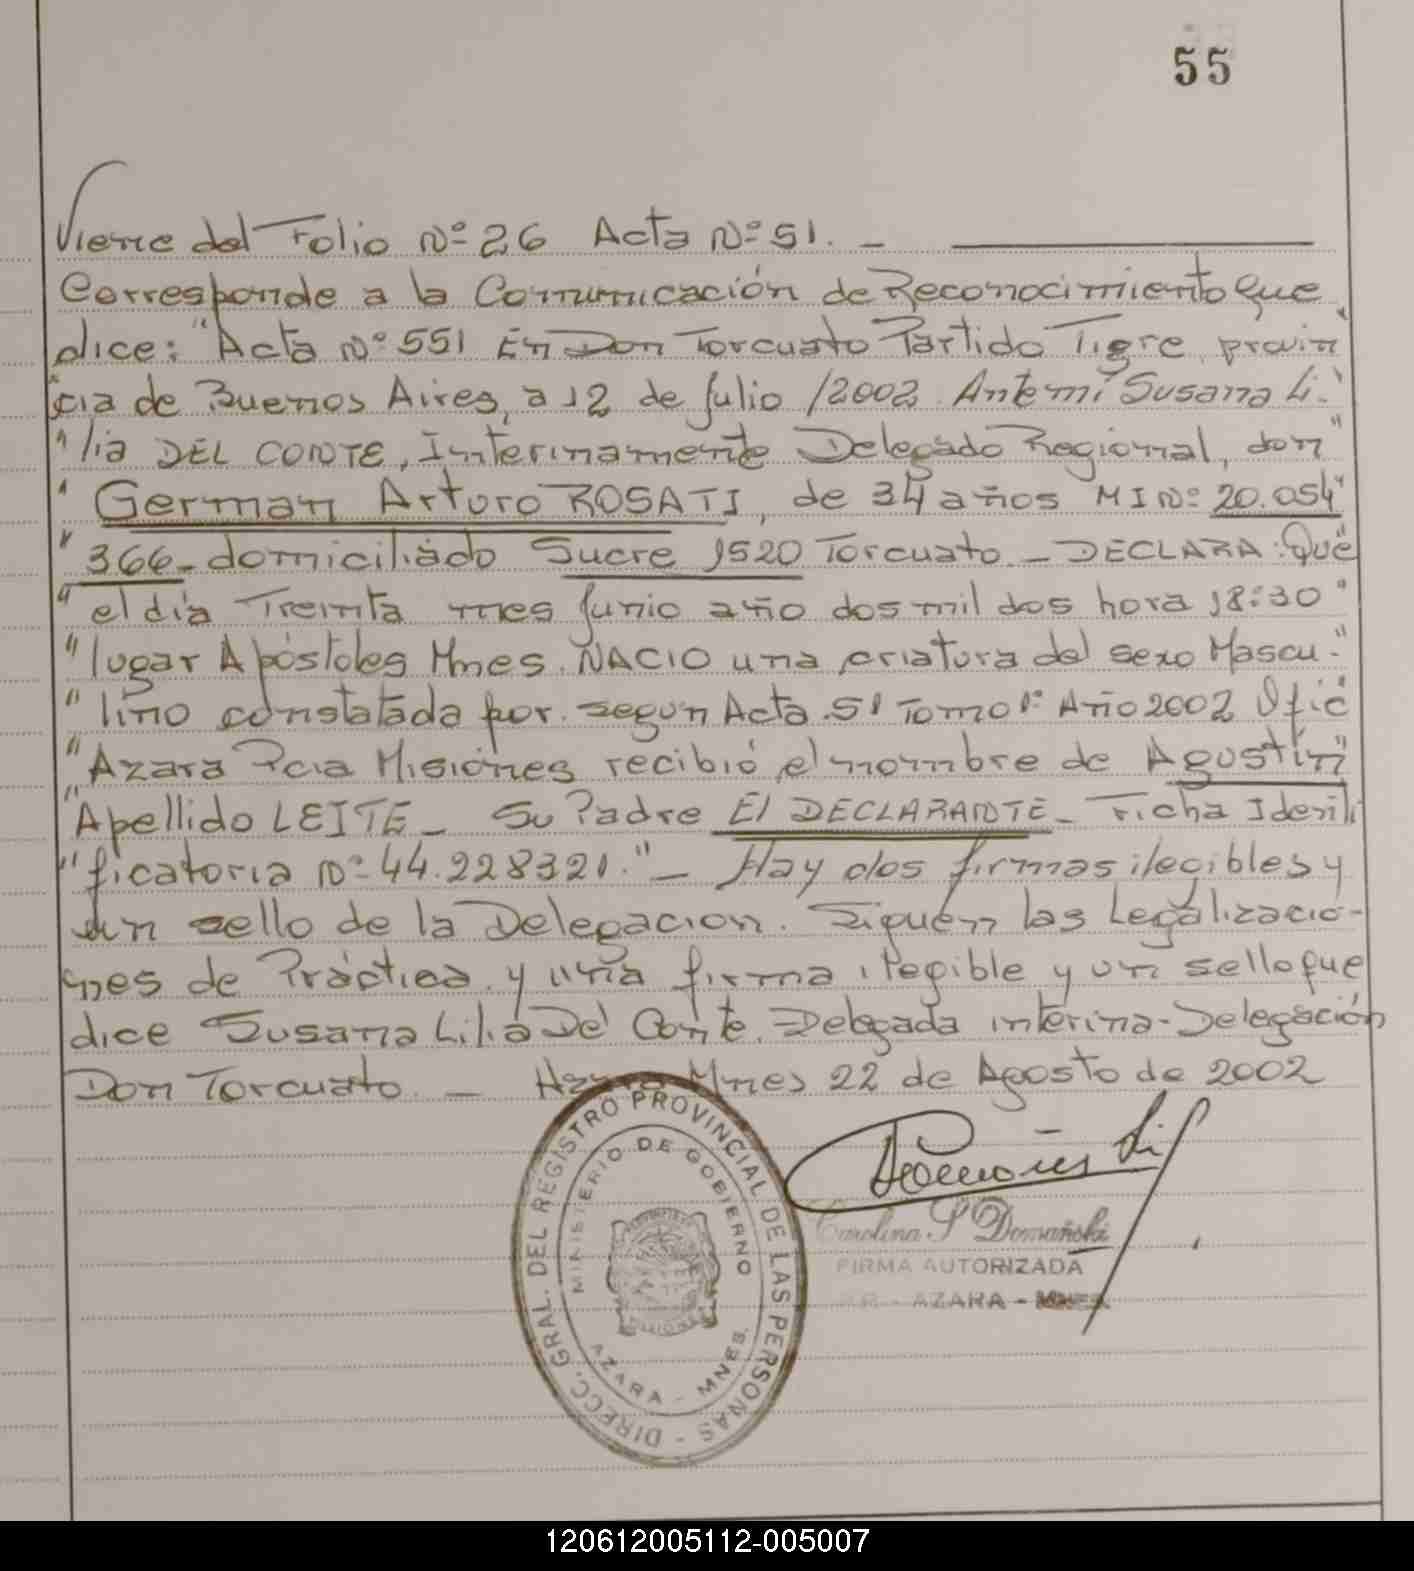 55
Viene del Folio Nº 26 Acta Nº 51. —
Corresponde a la Comunicación de Reconocimiento que
dice: "Acta Nº 551 En Don Torcuato Partido Tigre, provin"
"cia de Buenos Aires, a 12 de Julio /2002. Ante mí Susana Li."
"lia DEL CONTE, Interinamente Delegado Regional, don"
"German Arturo ROSATI, de 34 años MI Nº: 20.054"
"366- domiciliado Sucre 1520 Torcuato. _ DECLARA: Que
"el día Treinta mes Junio año dos mil dos hora 18:30"
"lugar Apóstoles Mnes. NACIO una criatura del sexo Mascu-"
"lino constatada por. segun Acta 51 Tomo 1º Año 2002 Ofic
"Azara Pcia Misiones recibió el nombre de Agustín"
"Apellido LEITE_ Su Padre El DECLARANTE_ Ficha Identi
"ficatoria Nº 44.228321." _ Hay dos firmas ilegibles y
un sello de la Delegacion. Siguen las Legalizacio-
nes de Práctica y una firma ilegible y un sello que
dice Susana Lilia Del Conte. Delegada interina - Delegación
Don Torcuato. — Azara Mnes 22 de Agosto de 2002
DIRECC. GRAL. DEL REGISTRO PROVINCIAL DE LAS PERSONAS -
MINISTERIO DE GOBIERNO
AZARA - MNES.
Carolina S Domański
FIRMA AUTORIZADA
AZARA - MNES
120612005112-005007